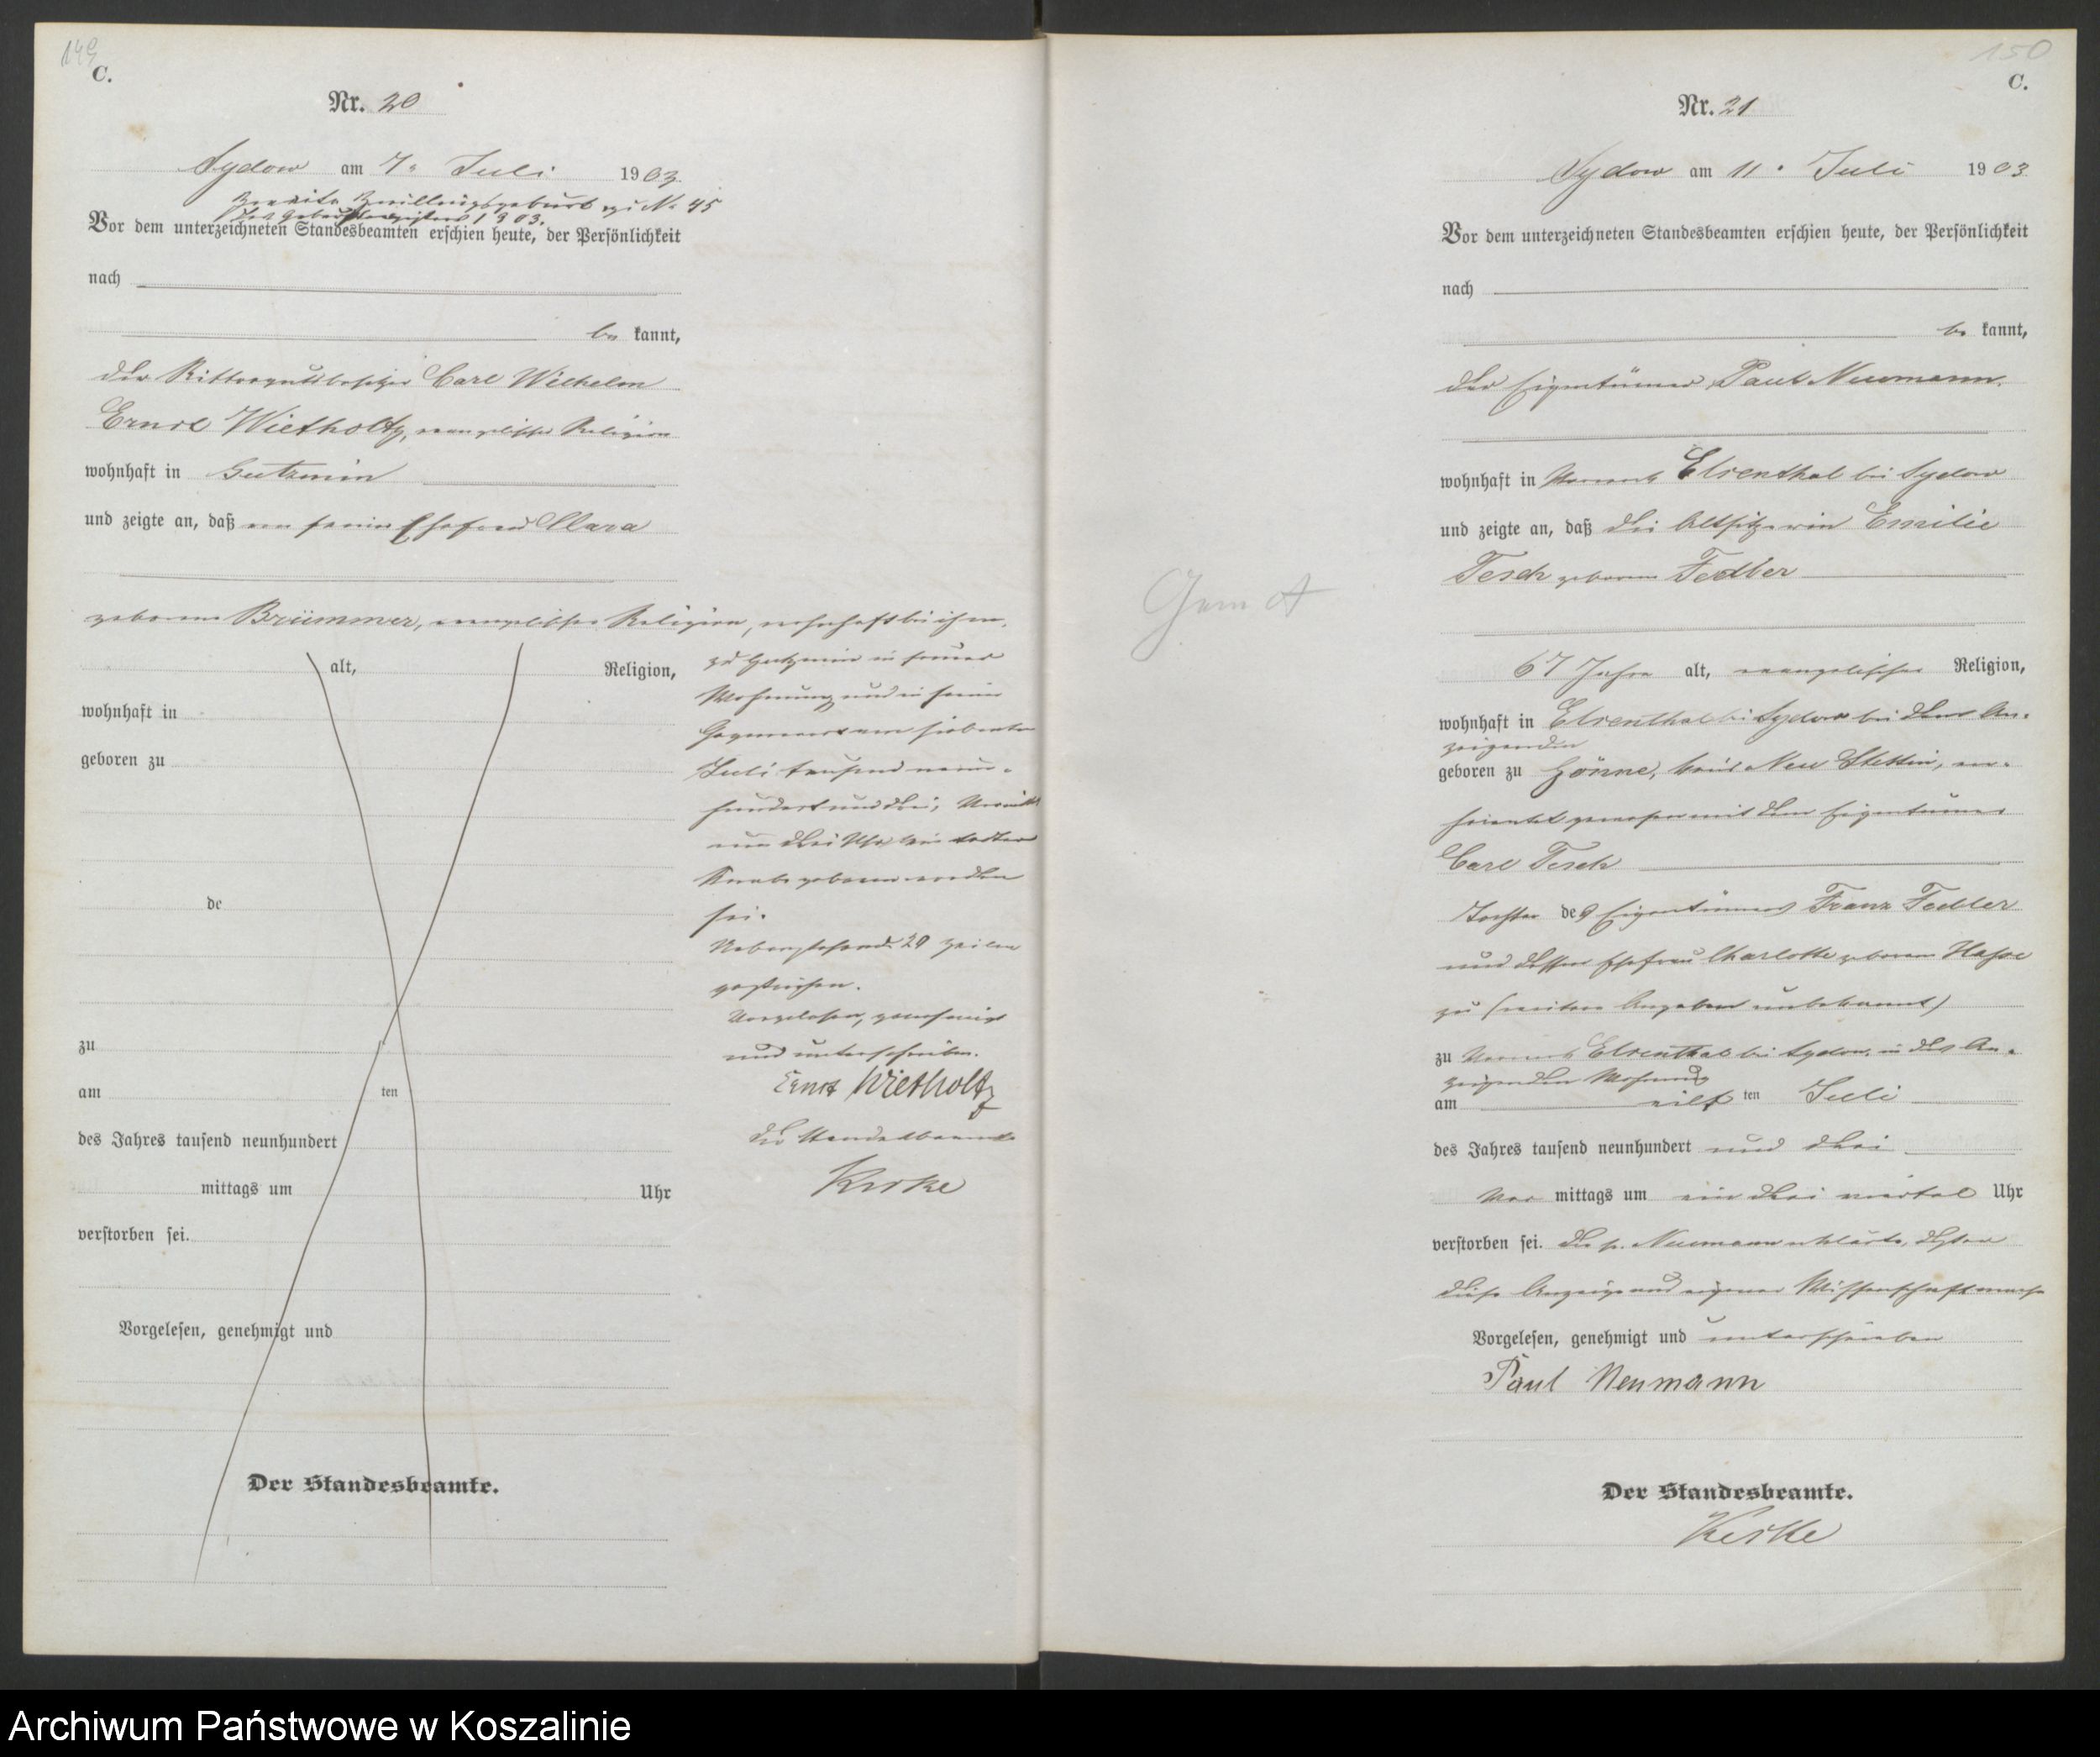 149
C.
Nr. 20
Sydow am 7. Juli 1903.
Zweite Zwillingsgeburt zu No 45
des Geburtsregisters 1903.
Vor dem unterzeichneten Standesbeamten erschien heute, der Persönlichkeit
nach
be kannt,
der Rittergutsbesitzer Carl Wilhelm
Ernst Wietholtz, evangelischer Religion
wohnhaft in Gutzmin
und zeigte an, daß von seiner Ehefrau Clara
geborene Brümmer, evangelischer Religion, wohnhaft bei ihm,
alt, Religion,
wohnhaft in
geboren zu
de
zu
am ten
des Jahres tausend neunhundert
mittags um Uhr
verstorben sei.
Vorgelesen, genehmigt und
Der Standesbeamte.
zu Gutzmin in seiner
Wohnung und in seiner
Gegenwart am siebenten
Juli tausend neun-
hundert und drei, Vormittags
um drei Uhr ein todter
Knabe geboren worden
sei.
Vorstehende 29 Zeilen
gestrichen.
Vorgelesen, genehmigt
und unterschrieben.
Ernst Wietholtz
Der Standesbeamte
Kerske
150
C.
Nr. 21
Sydow am 11. Juli 1903
Vor dem unterzeichneten Standesbeamten erschien heute, der Persönlichkeit
nach
be kannt,
der Eigentümer Paul Neumann.
wohnhaft in Vorwerk Elsenthal bei Sydow
und zeigte an, daß die Altsitzerin Emilie
Tesch geborene Fedler
67 Jahre alt, evangelischer Religion,
wohnhaft in Elsenthal bei Sydow bei dem An-
zeigenden
geboren zu Gönne, Kreis Neu Stettin, ver-
heiratet gewesen mit dem Eigentümer
Carl Tesch
Tochter des Eigentümers Franz Fedler
und dessen Ehefrau Charlotte geborene Hasse
zu (weitere Angaben unbekannt)
zu Vorwerk Elsenthal bei Sydow, in des An-
zeigenden Wohnung
am elf ten Juli
des Jahres tausend neunhundert und drei
Vor mittags um ein drei viertel Uhr
verstorben sei. Der p. Neumann erklärte, daß er
diese Anzeige aus eigener Wissenschaft mache
Vorgelesen, genehmigt und unterschrieben
Paul Neumann
Der Standesbeamte.
Kerske
Archiwum Państwowe w Koszalinie